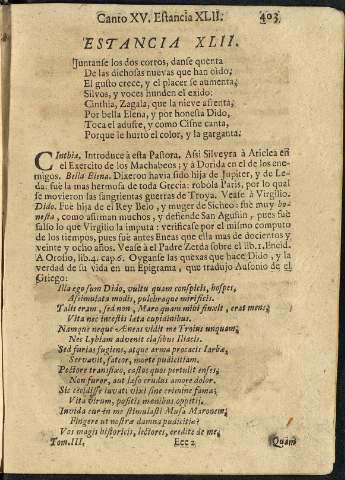 Canto XV. Estancia XLII. 403
ESTANCIA XLII.
Juntanse los dos coros, danse quenta
De las dichosas nuevas que han oido;
El gusto crece, y el placer se aumenta,
Silvos, y voces hunden el exido:
Cinthia, Zagala, que la nieve afrenta,
Por bella Elena, y por honesta Dido,
Toca el adufre, y como Cisne canta,
Porque le hurtò el color, y la garganta.
Cinthia. Introduce à esta Pastora. Assi Silveyra à Ariclea en
el Exercito de los Machabeos; y à Dorida en el de los ene-
migos. Bella Elena. Dixeron havia sido hija de Jupiter, y de Le-
da. fuè la mas hermosa de toda Grecia: robola Paris, por lo qual
se movieron las sangrientas guerras de Troya. Vease à Virgilio.
Dido. Fue hija de el Rey Belo, y muger de Sicheo: fue muy ho-
nesta, como afirman muchos, y defiende San Agustin, pues fuè
falso lo que Virgilio la imputa: verificase por el mismo computo
de los tiempos, pues fuè antes Eneas que ella mas de docientos y
veinte y ocho años. Vease à el Padre Zerda sobre el lib. 1. Eneid.
A Orosio, lib. 4. cap. 6. Oyganse las quexas que hace Dido, y la
verdad de su vida en un Epigrama, que tradujo Ausonio de el
Griego:
Illa ego sum Dido, vultu quam conspicis, hospes,
Assimulata modis, pulchraque mirificis.
Talis eram, sed non, Maro quam mihi finxit, erat mens;
Vita nec incestis lata cupidinibus.
Namque neque Æneas vidit me Troius unquam;
Nec Lybiam advenit classibus Iliacis.
Sed furias fugiens, atque arma procacis Iarbæ,
Servavit, fateor, morte pudicitiam.
Pectore transfixo, castos quod pertulit enses;
Non furor, aut læso crudus amore dolor.
Sic cecidisse iuvat: vixi sine crimine famæ;
Vita virum, positis mœnibus oppetij.
Invida cur in me stimulasti Musa Maronem;
Fingeret ut nostræ damna pudicitiæ?
Vos magis historicis, lectores, credite de me,
Tom. III. Eee 2 Quàm